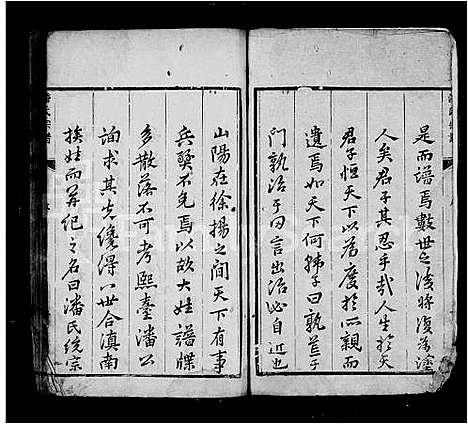 是而譜焉數世之後將復為塗
人矣君子其忍乎哉人生於天
君子恒天下以為度於所親而
遺焉如天下何韩子曰孰荁子
門孰治子田言出治必自近也
山陽在徐揚之間天下有事
兵燹不免焉以故大姓譜牒
多散落不可考熙臺潘公
詢求其先纔得八世合滇南
挨姓而并纪之名曰潘氏统宗